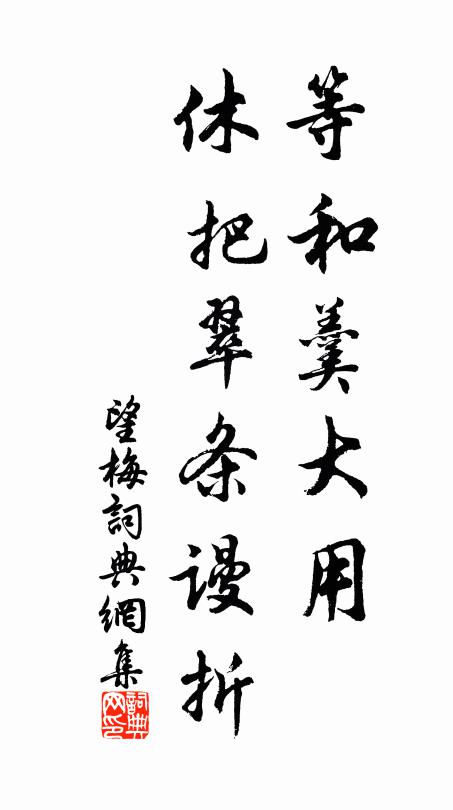 等和羹大用
休把翠条谩折
望梅詞典網集
詞典
网印